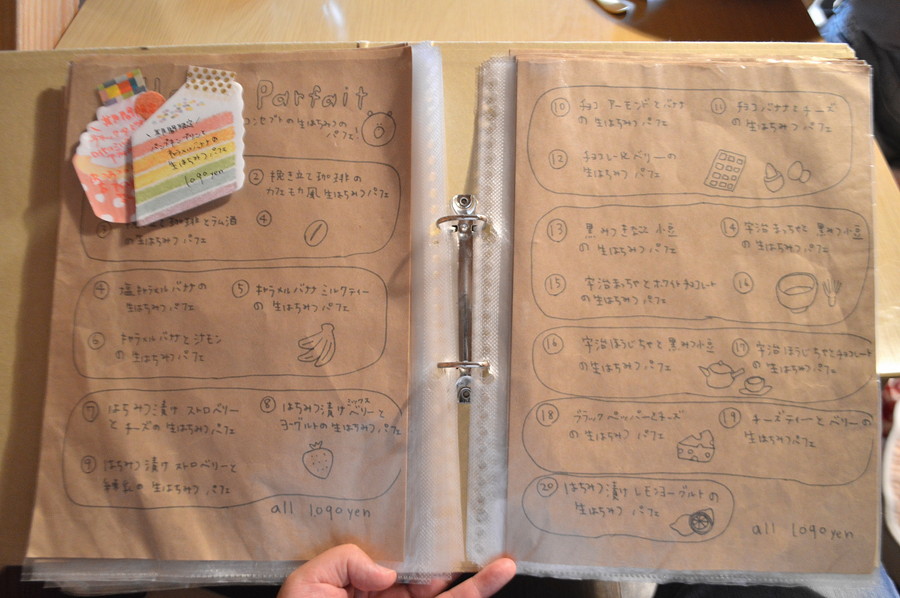 Parfait
コンセプトの生はちみつの
パフェ!
＼ 期間限定 ／
生はちみつパフェ
1090yen
② 挽き立て珈琲の
カフェモカ風 生はちみつパフェ
③ 珈琲とラム酒
の生はちみつパフェ
④
④ 塩キャラメルバナナの
生はちみつパフェ
⑤ キャラメルバナナミルクティー
の生はちみつパフェ
⑥ キャラメルバナナとシナモン
の生はちみつパフェ
⑦ はちみつ漬け ストロベリー
と チーズの生はちみつパフェ
⑧ はちみつ漬けミックスベリーと
ヨーグルトの生はちみつパフェ
⑨ はちみつ漬け ストロベリーと
の生はちみつ パフェ
all 1090yen
⑩ チョコ アーモンドとバナナ
の生はちみつ パフェ
⑪ チョコバナナとチーズ
の生はちみつパフェ
⑫ チョコレートベリーの
生はちみつパフェ
⑬ 黒みつきなこ 小豆
の生はちみつパフェ
⑭ 宇治まっちゃと 黒みつ小豆
の生はちみつパフェ
⑮ 宇治まっちゃとホワイトチョコレート
の生はちみつパフェ
⑯
⑯ 宇治ほうじちゃと黒みつ小豆
の生はちみつパフェ
⑰ 宇治ほうじちゃとチョコレート
の生はちみつパフェ
⑱ ブラックペッパーとチーズ
の生はちみつパフェ
⑲ チーズティーとベリーの
生はちみつパフェ
⑳ はちみつ漬け レモンヨーグルトの
生はちみつ パフェ
all 1090yen